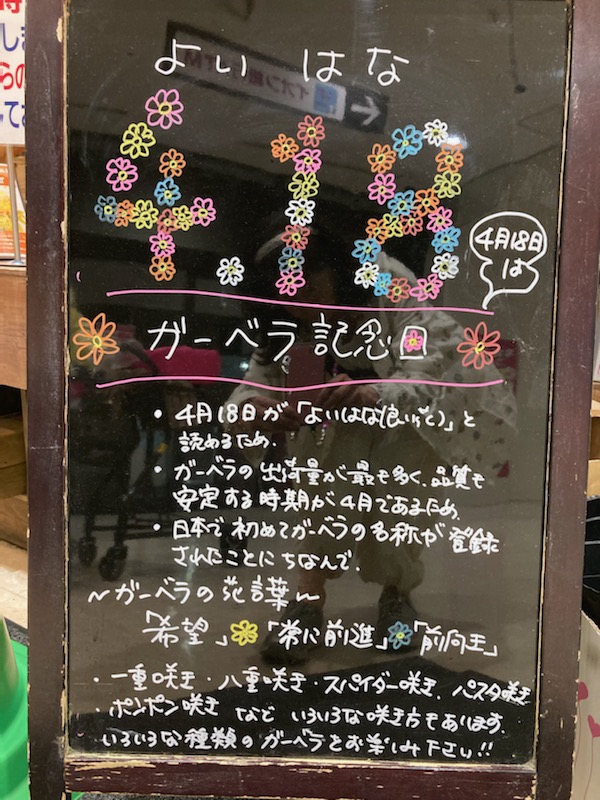 よい はな
4.18
4月18日
は
ガーベラ記念日
・4月18日が「よいはな(良い花)」と
読めるため.
・ガーベラの出荷量が最も多く、品質も
安定する時期が4月であるため。
・日本で初めてガーベラの名称が登録
されたことにちなんで.
~ガーベラの花言葉~
「希望」「常に前進」「前向き」
・一重咲き・八重咲き・スパイダー咲き、パスタ咲き
・ポンポン咲き など いろいろな咲き方もあります.
いろいろな種類のガーベラをお楽しみ下さい!!
イオン銀行ATM